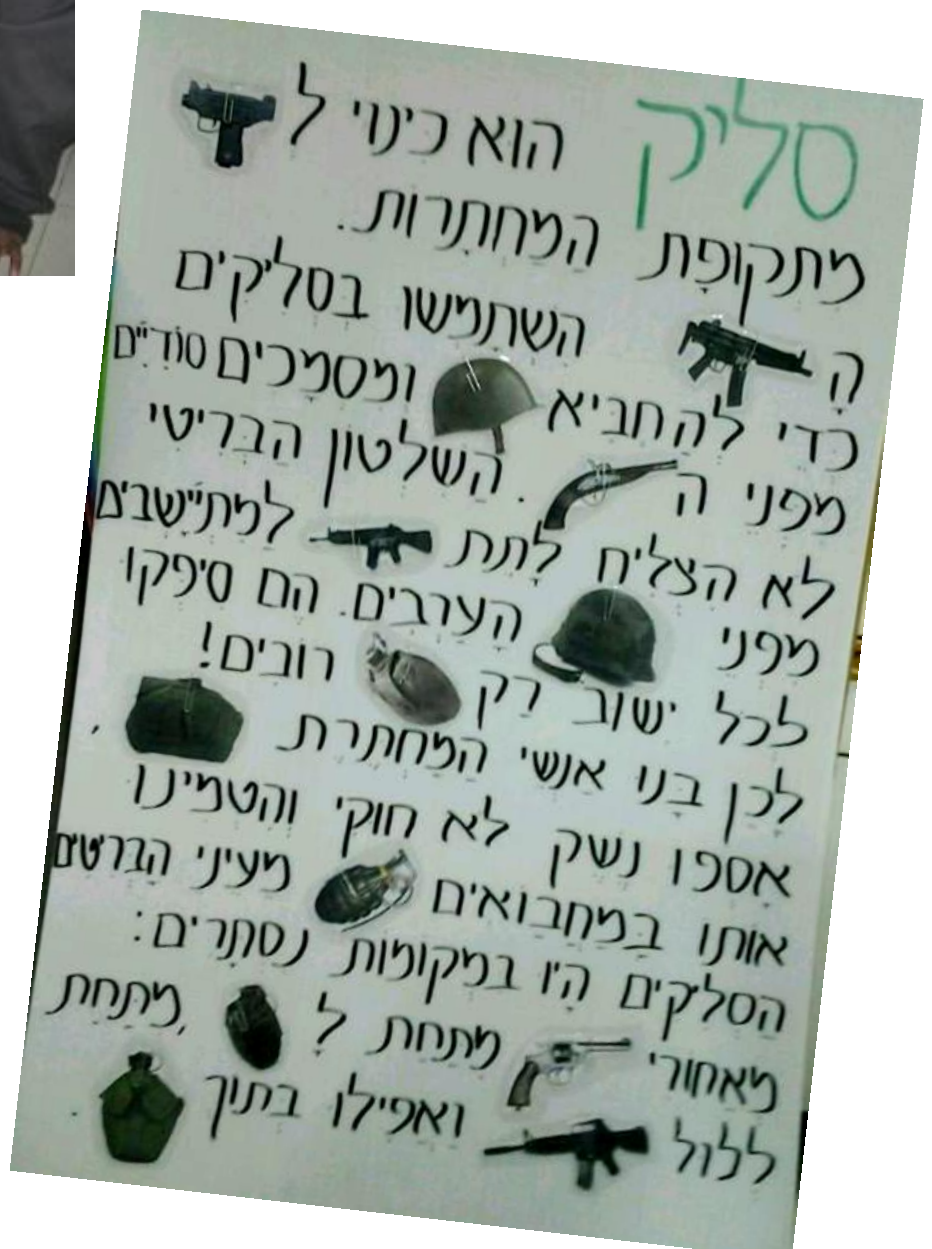 סליק הוא כינוי ל
מִתְקוּפַת הַמַּחְתָרוֹת.
הָ הִשְׁתַמְּשׁוּ בִּסְלִיקִים
כְּדֵי לְהַחְבִּיא וּמִסְמָכִים סוֹדִיִּים
מִפְּנֵי הַ . הַשִּׁלְטוֹן הַבְּרִיטִי
לֹא הִצְלִיחַ לָתֵת לַמִּתְיַשְּׁבִים
מִפְּנֵי הָעֲרָבִים. הֵם סִיפְּקוּ
לְכָל יִשּׁוּב רַק רוֹבִים!
לָכֵן בָּנוּ אַנְשֵׁי הַמַּחְתֶּרֶת ,
אָסְפוּ נֶשֶׁק לֹא חוּקִי וְהִטְמִינוּ
אוֹתוֹ בְּמַחֲבוֹאִים מֵעֵינֵי הַבְּרִטִים
הַסְּלִקִים הָיוּ בִּמְקוֹמוֹת נִסְתָּרִים:
מֵאֲחוֹרֵי מִתַּחַת לָ ,מִתַּחַת
לַלּוּל וַאֲפִילוּ בְּתוֹךְ .